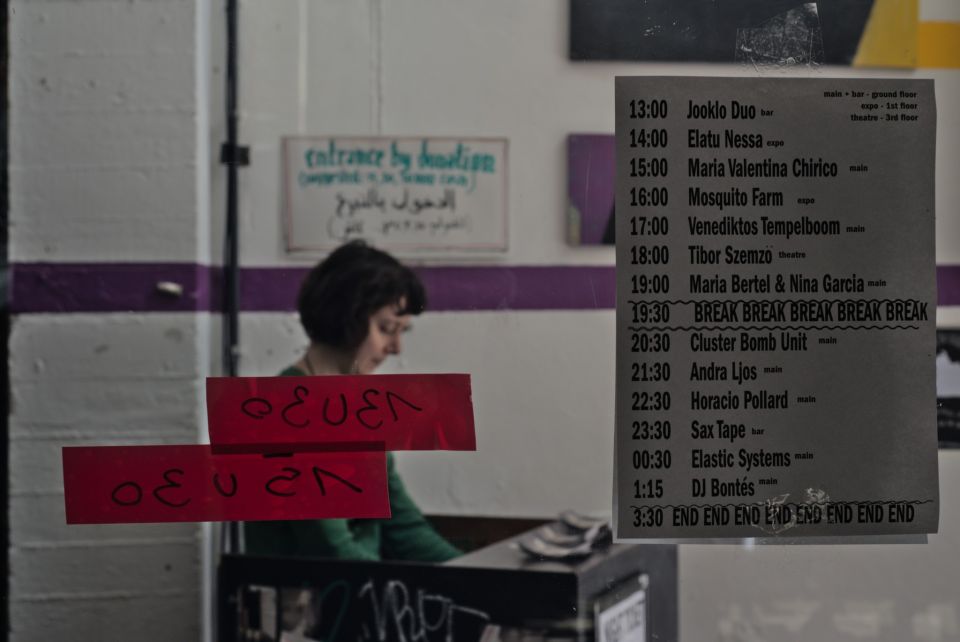 main + bar - ground floor
expo - 1st floor
theatre - 3rd floor
13:00 Jooklo Duo bar
14:00 Elatu Nessa expo
15:00 Maria Valentina Chirico main
16:00 Mosquito Farm expo
17:00 Venediktos Tempelboom main
18:00 Tibor Szemzö theatre
19:00 Maria Bertel & Nina Garcia main
19:30 BREAK BREAK BREAK BREAK BREAK
20:30 Cluster Bomb Unit main
21:30 Andra Ljos main
22:30 Horacio Pollard main
23:30 Sax Tape bar
00:30 Elastic Systems main
1:15 DJ Bontés main
3:30 END END END END END END END END
entrance by donation
الدخول بالتبرع
13U30
15U30